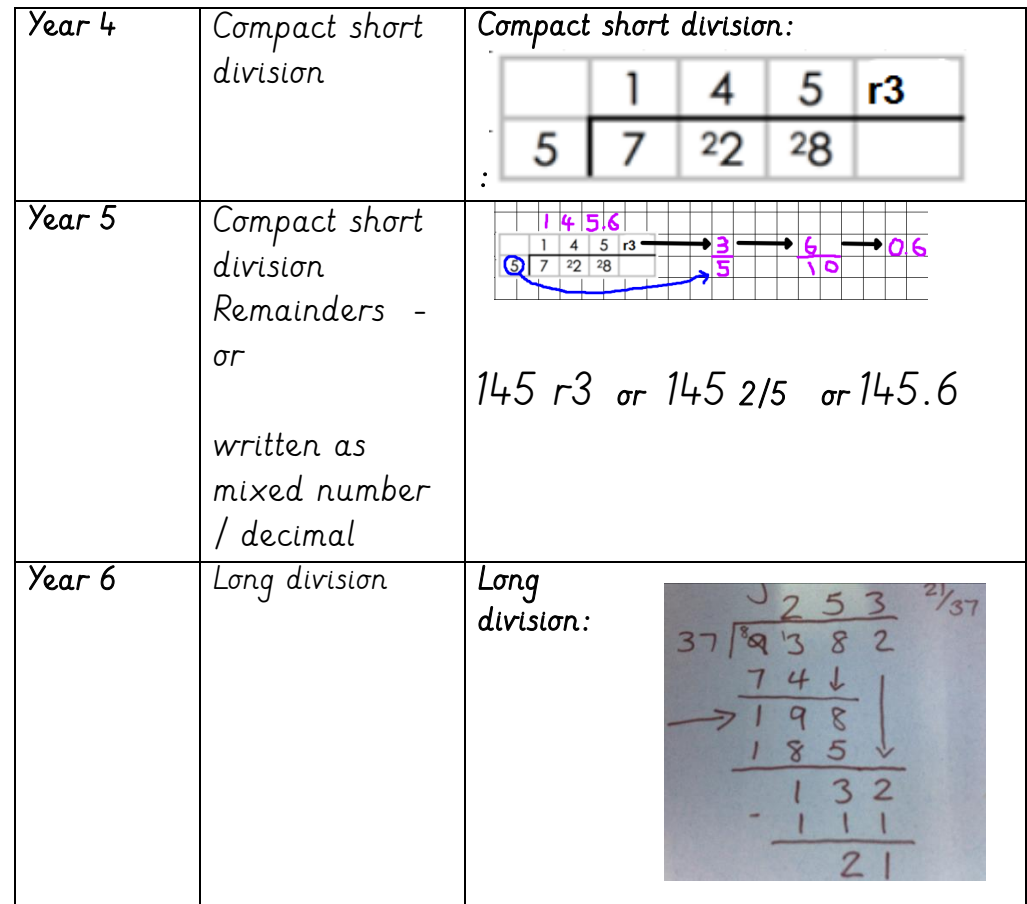 Year 4
Compact short
division
Compact short division:
1 4 5 r3
5 7 ²2 ²8
:
Year 5
Compact short
division
Remainders -
or
written as
mixed number
/ decimal
1 4 5.6
1 4 5 r3 3/5 6/10 0.6
5 7 ²2 ²8
145 r3 or 145 2/5 or 145.6
Year 6
Long division
Long
division:
2 5 3 21/37
37 ⁸9 ¹3 8 2
7 4
1 9 8
1 8 5
1 3 2
- 1 1 1
2 1